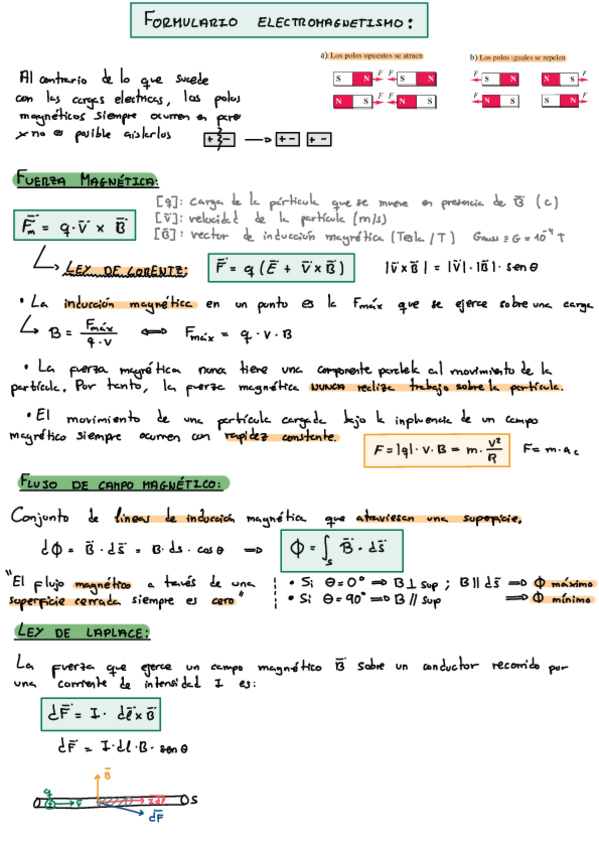 FORMULARIO ELECTROMAGNETISMO:
a) Los polos opuestos se atraen
b) Los polos iguales se repelen
F F F F
S N S N S N N S
N S N S N S S N
F F F F
Al contrario de lo que sucede
con las cargas electricas, los polos
magnéticos siempre ocurren en pares
y no es posible aislarlos
+ - → + - + -
FUERZA MAGNÉTICA:
F̄m = q·v̄ × B̄
[q]: carga de la párticula que se mueve en presencia de B̄ (C)
[v̄]: velocidad de la partícula (m/s)
[B̄]: vector de inducción magnética (Tesla / T) Gauss ≡ G = 10⁻⁴ T
LEY DE LORENTZ: F̄ = q (Ē + v̄ × B̄) |v̄×B̄| = |v̄|·|B̄|·sen θ
• La inducción magnética en un punto es la Fmáx que se ejerce sobre una carga
B = Fmáx / q·v ⟺ Fmáx = q·v·B
• La fuerza magnética nunca tiene una componente paralela al movimiento de la
partícula. Por tanto, la fuerza magnética NUNCA realiza trabajo sobre la partícula.
• El movimiento de una partícula cargada bajo la influencia de un campo
magnético siempre ocurren con rapidez constante.
F = |q|·v·B = m·v²/R F = m·ac
FLUJO DE CAMPO MAGNÉTICO:
Conjunto de líneas de inducción magnética que atraviesan una superficie.
dΦ = B̄·ds̄ = B·ds·cosθ ⟹ Φ = ∫s B̄·ds̄
"El flujo magnético a través de una
superficie cerrada siempre es cero"
• Si θ=0° ⟹ B⊥sup ; B∥ds̄ ⟹ Φ máximo
• Si θ=90° ⟹ B//sup ⟹ Φ mínimo
LEY DE LAPLACE:
La fuerza que ejerce un campo magnético B̄ sobre un conductor recorrido por
una corriente de intensidad I es:
dF̄ = I· dl̄×B̄
dF̄ = I·dl·B·senθ
B̄
q v̄ Idl̄ S
dF̄